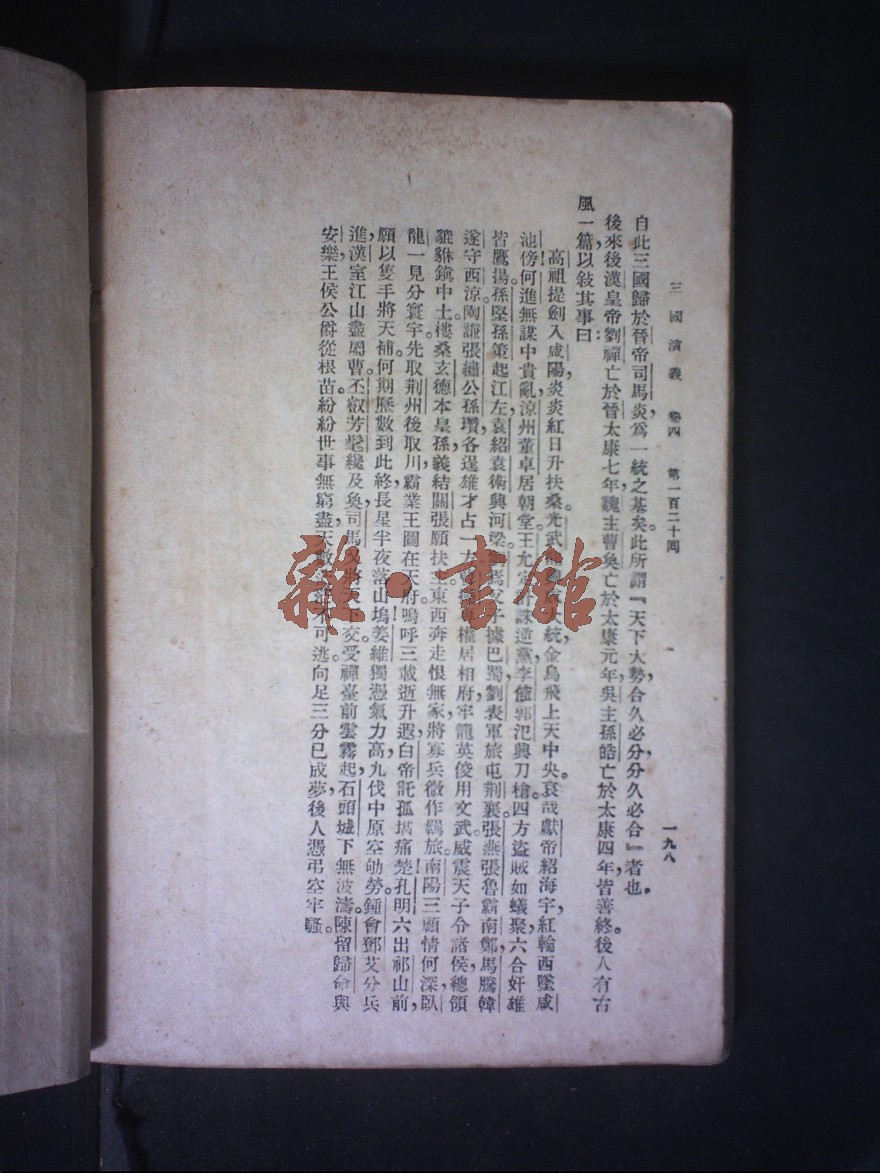 三國演義　卷四　第一百二十回　一九八
自此三國歸於晉帝司馬炎，爲一統之基矣。此所謂『天下大勢，合久必分，分久必合』者也。
後來後漢皇帝劉禪亡於晉太康七年，魏主曹奐亡於太康元年，吳主孫皓亡於太康四年，皆善終。後人有古
風一篇，以敍其事曰：
高祖提劍入咸陽，炎炎紅日升扶桑。光武 統，金烏飛上天中央。哀哉獻帝紹海宇，紅輪西墜咸
池傍。何進無謀中貴亂，涼州董卓居朝堂。王允定計誅逆黨，李傕郭汜興刀槍。四方盜賊如蟻聚，六合奸雄
皆鷹揚。孫堅孫策起江左，袁紹袁術興河梁。劉焉父子據巴蜀，劉表軍旅屯荊襄。張燕張魯霸南鄭，馬騰韓
遂守西涼。陶謙張繡公孫瓚，各逞雄才占一方。 權居相府，牢龍英俊用文武。威震天子令諸侯，總領
貔貅鎭中土。樓桑玄德本皇孫，義結關張願扶主。東西奔走恨無家，將寡兵微作羈旅。南陽三顧情何深，臥
龍一見分寰宇。先取荆州後取川，霸業王圖在天府。嗚呼三載逝升遐，白帝託孤堪痛楚。孔明六出祁山前，
願以隻手將天補。何期歷數到此終，長星半夜落山塢。姜維獨憑氣力高，九伐中原空劬勞。鍾會鄧艾分兵
進，漢室江山盡屬曹。丕叡芳髦纔及奐，司馬又將天下交。受禪臺前雲霧起，石頭城下無波濤。陳留歸命與
安樂，王侯公爵從根苗。紛紛世事無窮盡，天數 不可逃。向足三分已成夢，後人憑弔空牢騷。
雜·書館